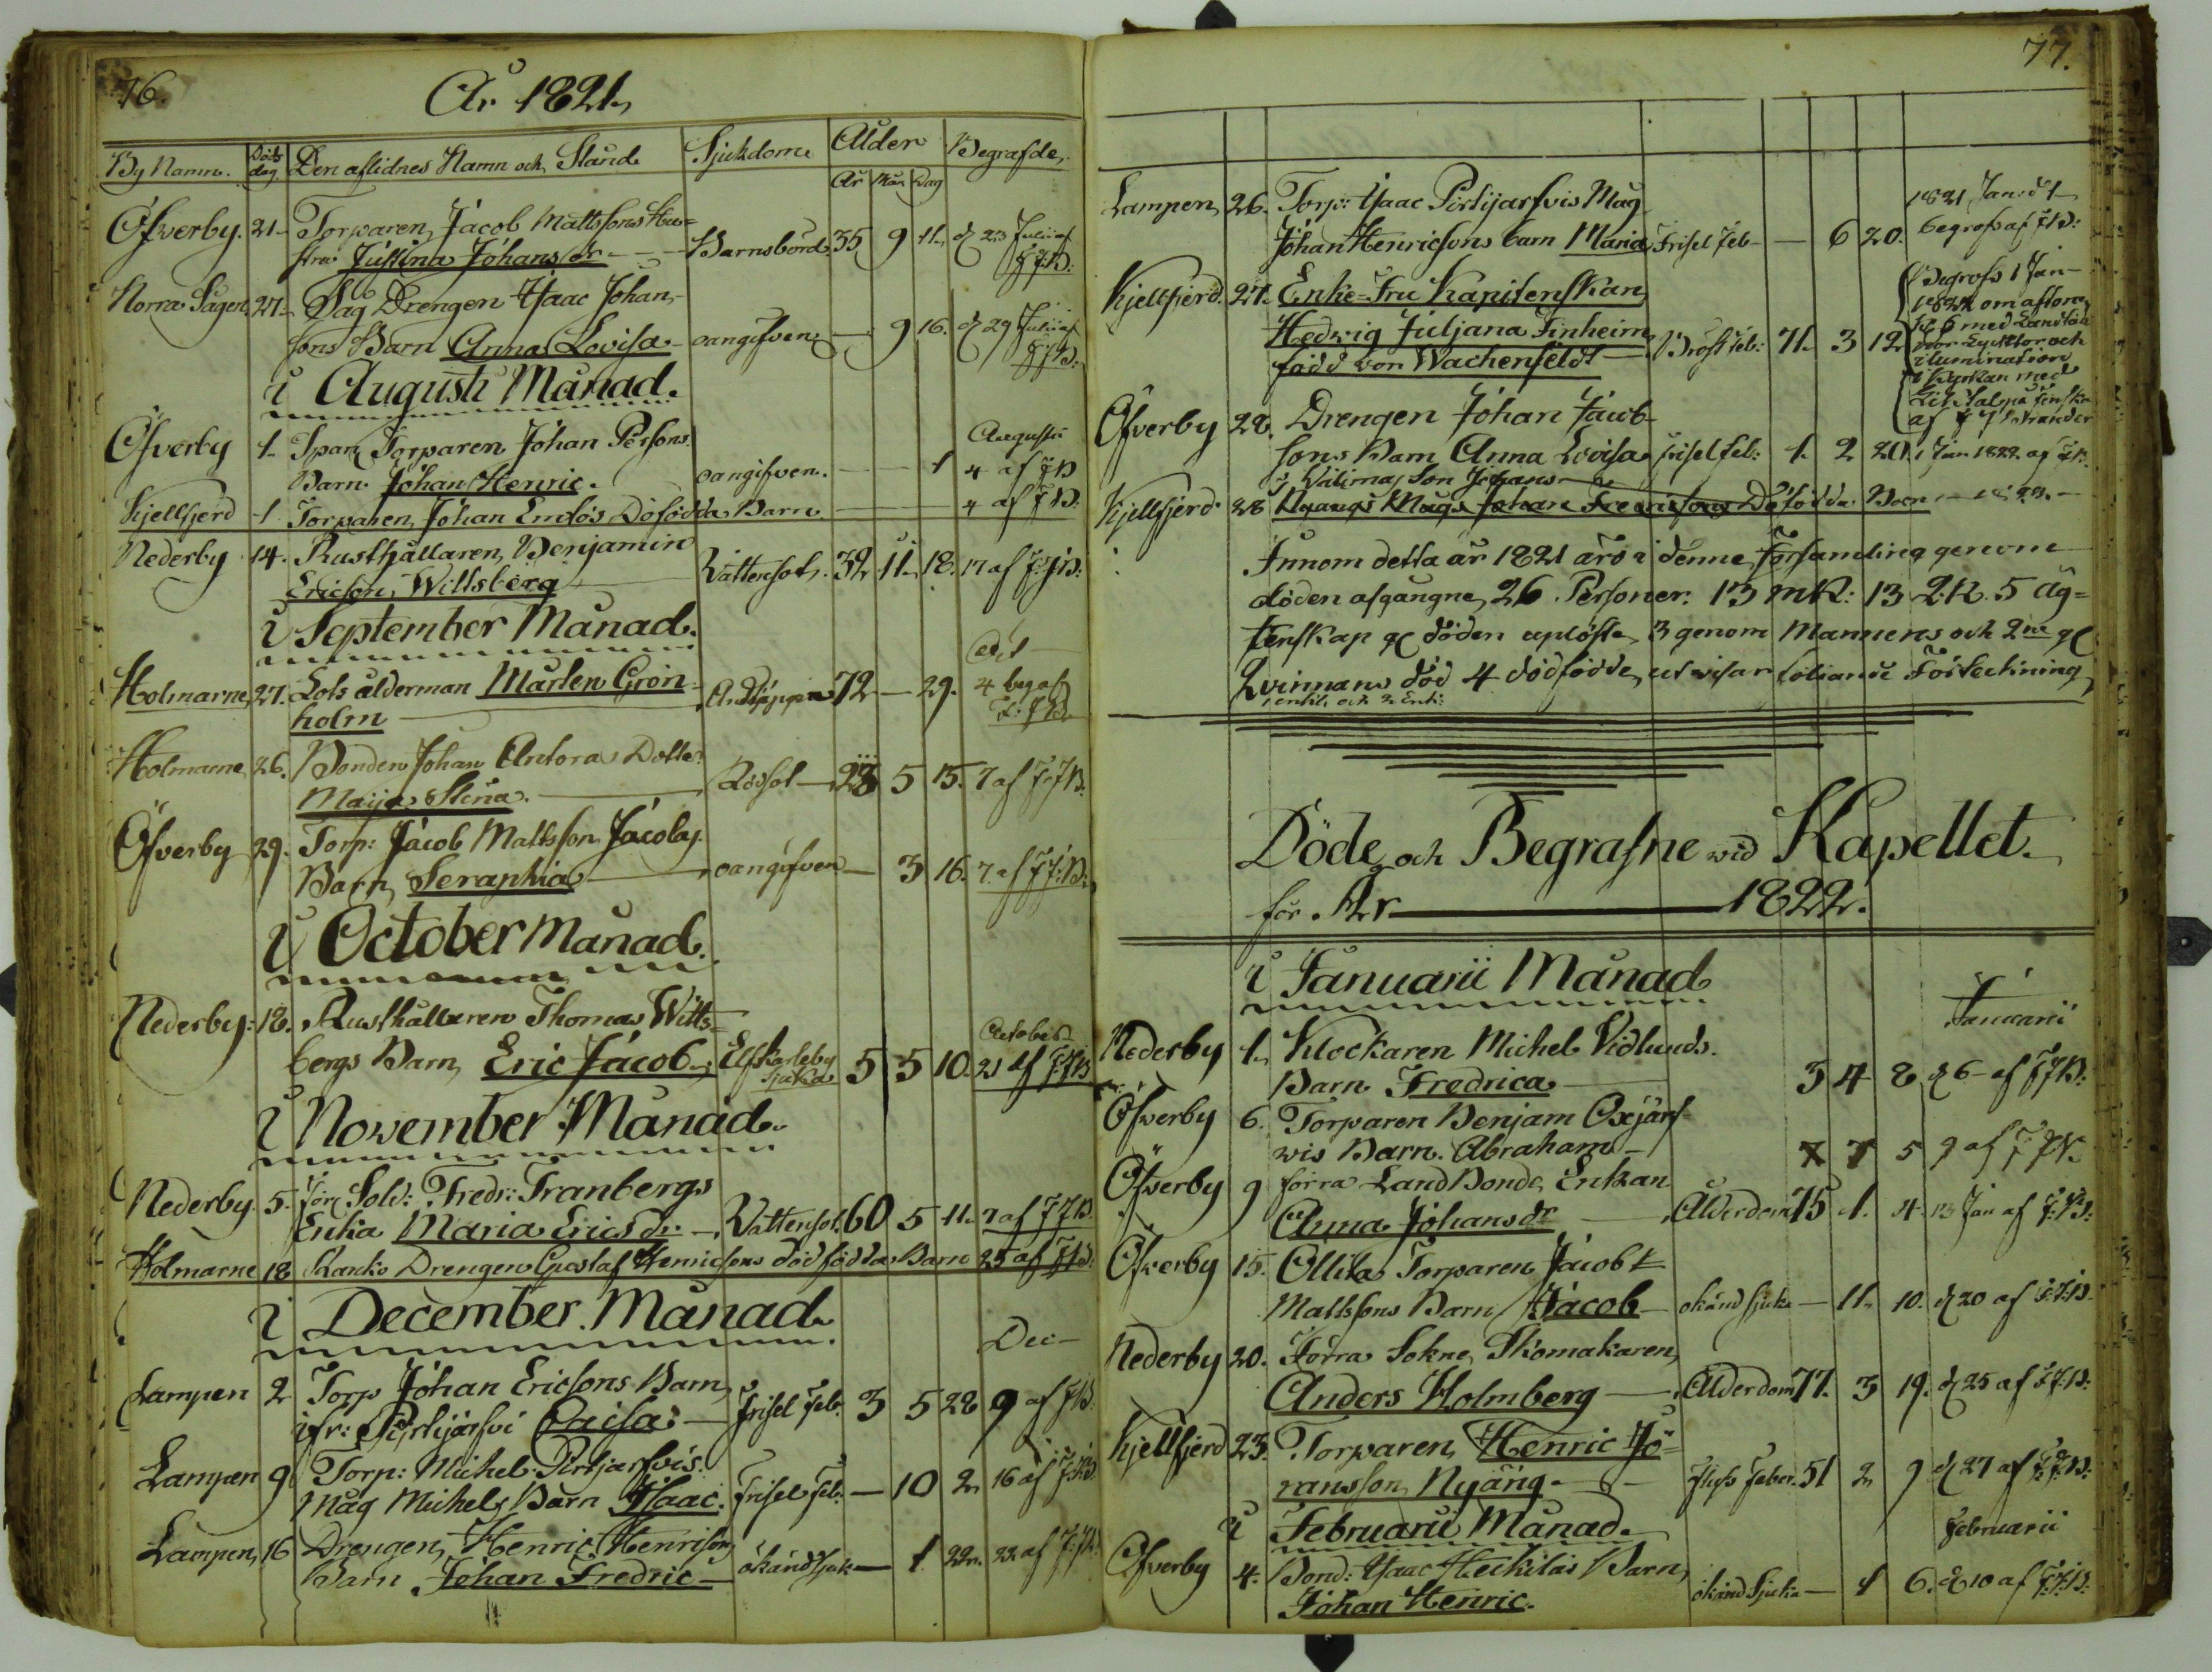 76.
År 1821.
By Namn. Döds dag Den aflidnes Namn och Stånd Sjukdom Ålder Begrafde.
År Mån Dag
Öfverby. 21. Torparen Jacob Mattssons Hu=
stru Justina Johansdr Barnsbörd. 35 9 11. d 23 Julii af
F: J B:
Norra Sågen 27. Såg Drengen Isaac Johan-
sons Barn Anna Lovisa oangifven — 9 16. d 29 Julii af
i Augusti Månad.
Augusti
Öfverby 1. Torparen Johan Persons
Barn Johan Henric. oangifven. — — 1 4 af F B
Kjellfjerd 1 Torparen Johan Enlös Döfödda Barn 4 af F B:
Nederby 14. Rusthållaren Benjamin
Ericson Willsberg Vattensot. 32 11 18. 17 af F: J B:
i September Månad.
Holmarne 27. Lots ålderman Mårten Grön- 72 — 29. 4 beg af
holm
Holmarne 26. Bonden Johan Antora Dotter
Maija Stina. Rödsot 28 5 15. 7 af F: J B:
Öfverby 29. Torp: Jacob Mattsson Jacobs
Barn Seraphia oangifven — 3 16. 7 af F: J: B:
i October Månad.
October
Nederby: 18. Rusthållaren Thomas Witts-
bergs Barn Eric Jacob Elfkarleby
Sjuka 5 5 10. 21 af F: J B
i November Månad.
Nederby. 5. förr Sold: Fredr: Tranbergs
Enka Maria Ericsdr Vattensot. 60 5 11. 7 af F J B
Holmarne 18 Drengen Gustaf Henricsons dödfödda Barn 25 af F J B:
i December Månad.
Dec
Lampen 2 Torp Johan Ericsons Barn
ifr: Pirtijärfvi Caisa Frisel Feb: 3 5 28 9 af F B:
Lampen 9 Torp: Michel Pirtijarfvis
Måg Michels Barn Isaac. Frisel Feb: — 10 2 16 af F: J B:
Lampen 16 Drengen Henric Henrisons
Barn Johan Fredric okänd Sjuk — 1 22. 22 af F: J B:
77.
Lampen 26. Torp: Isaac Pirtijarfvis Måg 1821 Jan: d 1
Johan Henricsons barn Maria Frisel Feb — 6 20. begrofs af F B:
Kjellfjerd. 27. Enke-Fru Kapitenskan
Hedvig Juljana Finheim Bröst feb: 71. 3 12
född von Wachenfeldt
Begrofs 1 Jan-
1822 om aftonen
kl 6 med
Lycktor och
ilumination
i Kyrkan med
Liktal på finska
af F J Strander
Öfverby 28. Drengen Johan Jacob-
sons Barn Anna Lovisa Frisel feb: 1. 2 20. 1 Jan 1822. af F B.
Son Johans
Kjellfjerd 28 Nyängs Mågs Johan Fredricsons Döfödda Barn
Innom detta år 1821 äro i denne Församling genom
döden afgångne 26 Personer: 13 m.K: 13 Q.K. 5 Äg=
tenskap gl döden uplöste, 3 genom Mannens och 2ne gl
Qvinnans död 4 dödfödde, utvisar följande Förteckning
1 enkl. och 2 Enk:
Döde och Begrafne vid Kapellet.
för År 1822.
i Januarii Månad
Januarii
Nederby 1. Klockaren Michel Vidlunds
Barn Fredrica 3 4 8 d 6 af F J B:
Öfverby 6. Torparen Benjam Oxjärf-
vis Barn Abraham 7 5 9 af F: J B.
Öfverby 9 förra Land Bonde Enkan
Anna Johansdr Ålderdom 75 1. 4. 13 Jan af F: J B:
Öfverby 15. Ollila Torparen Jacob
Mattssons Barn Jacob okänd Sjuka — 11. 10. d 20 af F: J: B:
Nederby 20. Förra Sokne Skomakaren
Anders Holmberg Ålderdom 77. 3 19. d 25 af F: J: B:
Kjellfjerd 23. Torparen Henric Jö=
ransson Nyäng. Feber. 51 2 9 d 27 af F: J: B:
i Februarii Månad.
Februarii
Öfverby 4. Bond: Isaac Heikilas Barn
Johan Henric. okänd Sjuka — 1 6. d 10 af F: J: B: